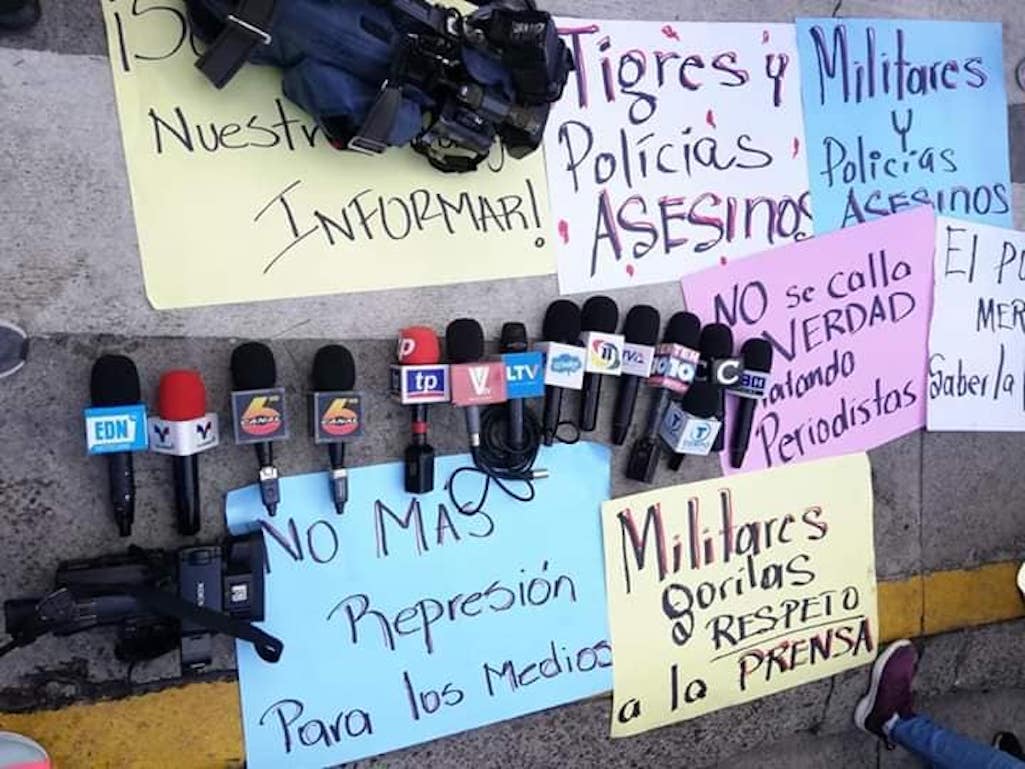 Nuestr
INFORMAR!
Tigres y
Policías
ASESINOS
Militares
y
Policías
ASESINOS
NO se calla
VERDAD
Matando
Periodistas
El
MER
Saber la
EDN
6
CANAL
6
CANAL
tp
LTV
11
10
C
NO MÁS
Represión
Para los Medios
Militares
gorilas
RESPETO
a la PRENSA